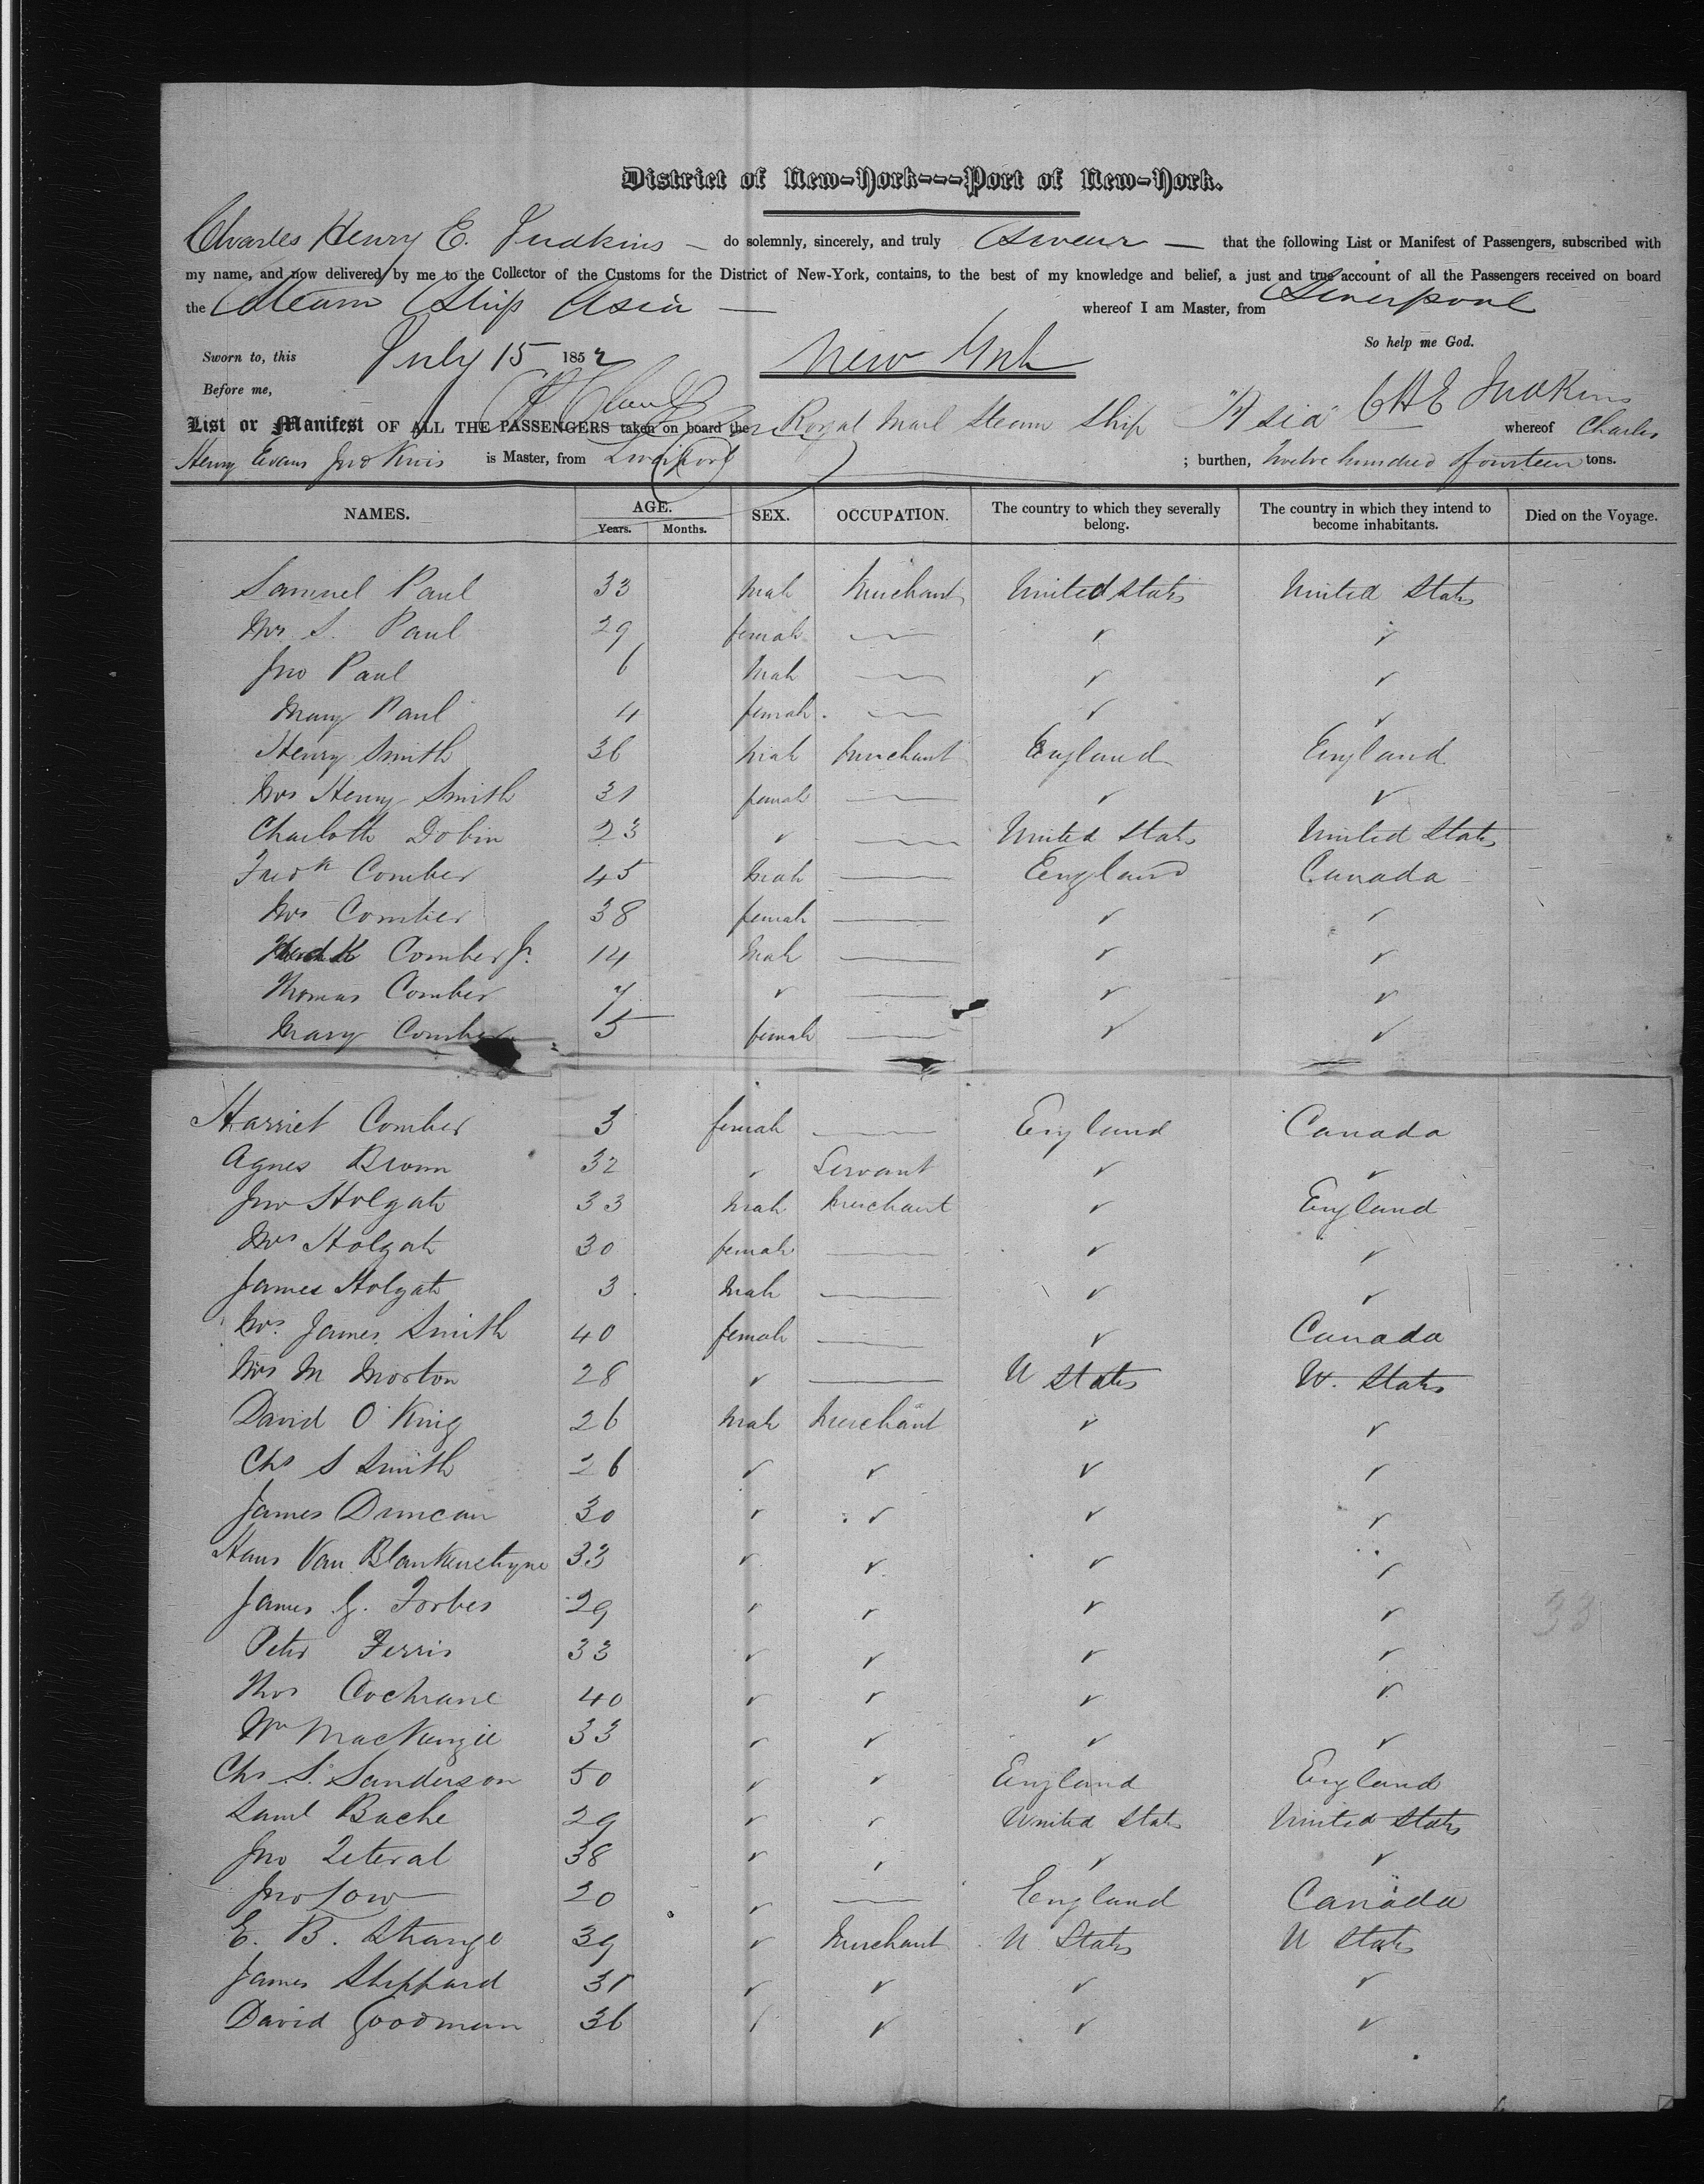 District of New-York---Port of New-York.
Charles Henry E. Judkins — do solemnly, sincerely, and truly Swear — that the following List or Manifest of Passengers, subscribed with
my name, and now delivered by me to the Collector of the Customs for the District of New-York, contains, to the best of my knowledge and belief, a just and true account of all the Passengers received on board
the Steam Ship Asia — whereof I am Master, from Liverpool
So help me God.
Sworn to, this July 15 1852 New York
Before me, CHE Judkins
List or Manifest OF ALL THE PASSENGERS taken on board the Royal Mail Steam Ship "Asia" whereof Charles
Henry Evans Judkins is Master, from Liverpool ; burthen, twelve hundred fourteen tons.
NAMES. AGE. SEX. OCCUPATION. The country to which they severally belong. The country in which they intend to become inhabitants. Died on the Voyage.
Years. Months.
Samuel Paul 33 male Merchant United States United States
Mrs S. Paul 29 female — ✓ ✓
Jno Paul 6 male — ✓ ✓
Mary Paul 4 female — ✓ ✓
Henry Smith 36 male Merchant England England
Mrs Henry Smith 31 female — ✓ ✓
Charlotte Dobin 23 ✓ — United States United States
Fredk Comber 45 male — England Canada
Mrs Comber 38 female — ✓ ✓
Fredk Comber Jr. 14 male — ✓ ✓
Thomas Comber 7 ✓ — ✓ ✓
Mary Comber 5 female — ✓ ✓
Harriet Comber 3 female — England Canada
Agnes Brown 32 ✓ Servant ✓ ✓
Jno Holgate 33 male Merchant ✓ England
Mrs Holgate 30 female — ✓ ✓
James Holgate 3 male — ✓ ✓
Mrs. James Smith 40 female — ✓ Canada
Mrs M Morton 28 ✓ — U States U. States
David O King 26 male Merchant ✓ ✓
Chs S Smith 26 ✓ ✓ ✓ ✓
James Duncan 30 ✓ ✓ ✓ ✓
Hans Van Blankensteyne 33 ✓ ✓ ✓ ✓
James G. Forbes 29 ✓ ✓ ✓ ✓
33
Peter Ferris 33 ✓ ✓ ✓ ✓
Thos Cochrane 40 ✓ ✓ ✓ ✓
Wm MacKenzie 33 ✓ ✓ ✓ ✓
Chs S. Sanderson 50 ✓ ✓ England England
Saml Bache 29 ✓ ✓ United States United States
Jno Zeteral 38 ✓ ✓ ✓ ✓
Jno Low 20 ✓ — England Canada
E. B. Strange 39 ✓ Merchant U States U States
James Sheppard 31 ✓ ✓ ✓ ✓
David Goodman 36 ✓ ✓ ✓ ✓